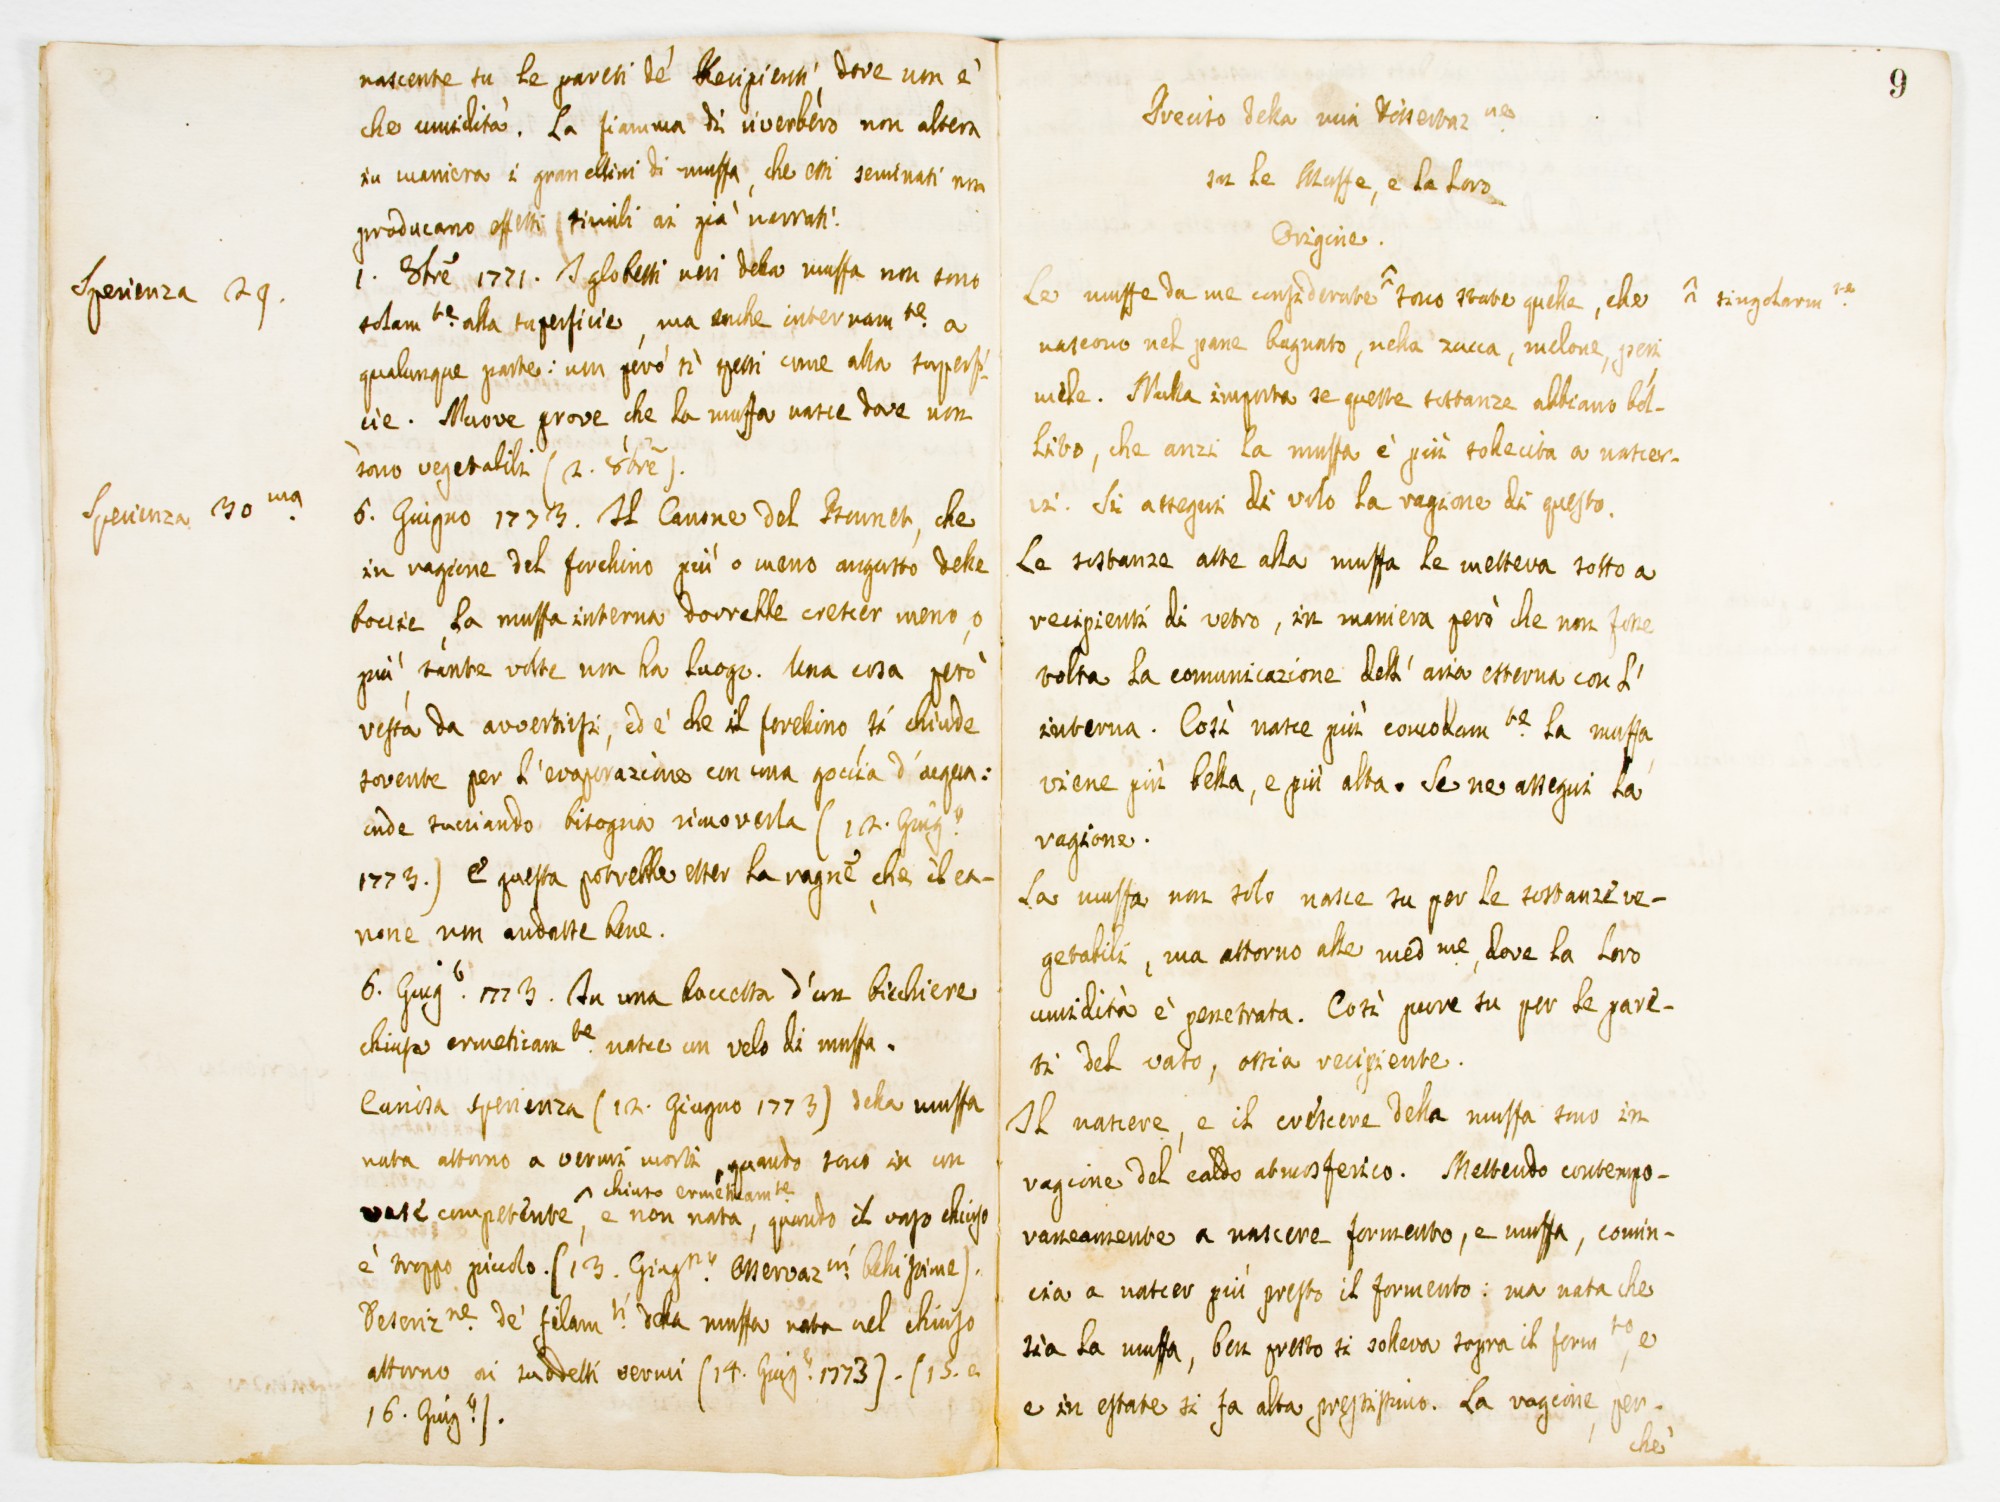 nascente su le pareti de' Recipienti, dove non è
che umidità. La fiamma di riverbero non altera
in maniera i granellini di muffa, che essi seminati non
producano effetti simili ai già narrati.
Sperienza 29.
1. 8bre 1771. I globetti neri della muffa non sono
solam.te alla superficie, ma anche internam.te a
qualunque parte: non però sì spessi come alla superfi-
cie. Nuove prove che la muffa nasce dove non
sono vegetabili (2. 8bre).
Sperienza 30ma
6. Giugno 1773. Il Canone del Bounet, che
in ragione del forellino più o meno angusto delle
boccie, la muffa interna dovrebbe crescer meno, o
più, tante volte non ha luogo. Una cosa però
resta da avvertirsi, ed e' che il forellino si chiude
sovente per l'evaporazione con una goccia d'acqua:
onde succiando bisogna rimoverla (12. Giug.o
1773.) E questa potrebbe esser la ragne, che il ca-
none non andasse bene.
6. Giug.o 1773. In una boccetta d'un bicchiere
chiusa ermeticam.te nasce un velo di muffa.
Curiosa sperienza (12. Giugno 1773) della muffa
nata attorno a vermi morti, quando sono in un
chiuso ermeticam.te
vase competente^, e non nata, quando il vaso chiuso
è troppo piccolo. (13. Giugn.o Osservaz.ni bellissime).
Descriz.ne de' filam.ti della muffa nata nel chiuso
attorno ai suddetti vermi (14. Giug.o 1773). (15. e
16. Giug.o).
9
Precito della mia Dissertaz.ne
su le Muffe, e la loro
Origine.
Le muffe da me considerate ^ sono state quelle, che
^ singolarm.te
nascono nel pane bagnato, nella zucca, melone, peri
mele. Nulla importa se queste sostanze abbiano bol-
lito, che anzi la muffa è più sollecita a nascer-
vi. Si assegni di volo la ragione di questo.
Le sostanze atte alla muffa le metteva sotto a
recipienti di vetro, in maniera però che non fosse
tolta la comunicazione dell' aria esterna con l'
interna. Così nasce più comodam.te la muffa,
viene più bella, e più alta. Se ne assegni la
ragione.
La muffa non solo nasce su per le sostanze ve-
getabili, ma attorno alle med.me, dove la loro
umidità è penetrata. Così pure su per le pare-
ti del vaso, ossia recipiente.
Il nascere, e il crescere della muffa sono in
ragione del caldo atmosferico. Mettendo contempo-
raneamente a nascere formento, e muffa, comin-
cia a nascer più presto il formento: ma nata che
sia la muffa, ben presto si solleva sopra il form.to, e
e in estate si fa alta prestissimo. La ragione, per-
chè